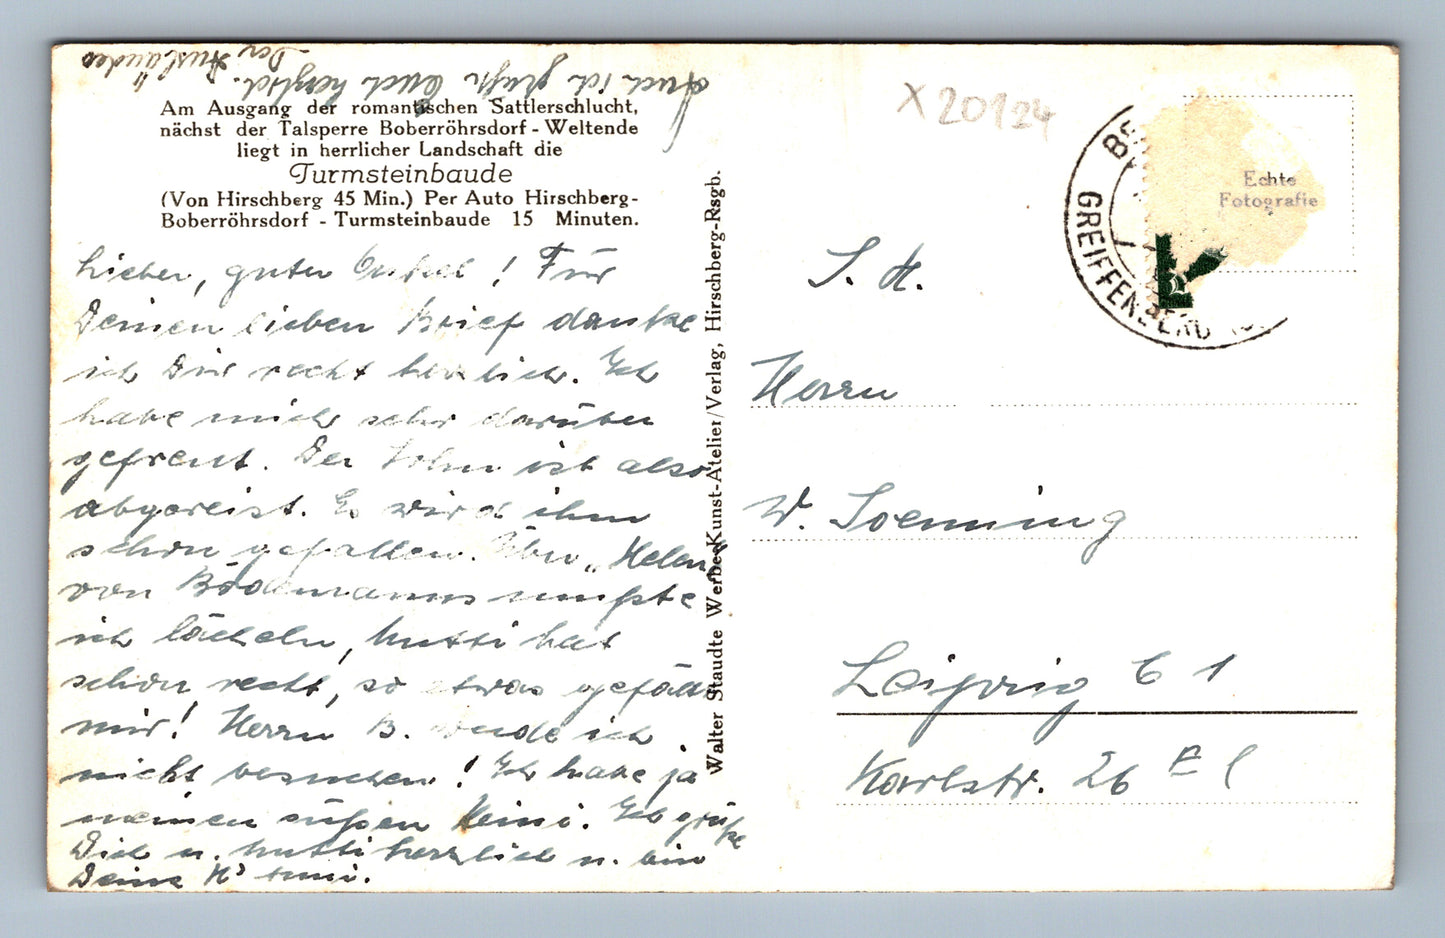 Auch ich grüße Euch herzlich.
Der Ausländer
Am Ausgang der romantischen Sattlerschlucht,
nächst der Talsperre Boberröhrsdorf - Weltende
liegt in herrlicher Landschaft die
Turmsteinbaude
(Von Hirschberg 45 Min.) Per Auto Hirschberg-
Boberröhrsdorf - Turmsteinbaude 15 Minuten.
Lieber, guter Onkel! Für
Deinen lieben Brief danke
ich Dir recht herzlich. Ich
habe mich sehr darüber
gefreut. Der Sohn ist also
abgereist. Es wird ihm
schon gefallen. Über „Helen"
von Bödemanns mußte
ich lächeln, Mutti hat
schon recht, so etwas gefällt
mir! Herrn B. werde ich
nicht besuchen! Ich habe ja
meinen süßen Heini. Ich grüße
Dich u. Mutti herzlich u. bin
Deine
Walter Staudte Werbe-Kunst-Atelier/Verlag, Hirschberg-Rsgb.
X 20124
GREIFFENBERG
Echte
Fotografie
S. H.
Herrn
W. Soenning
Leipzig C 1
Karlstr. 26 E l